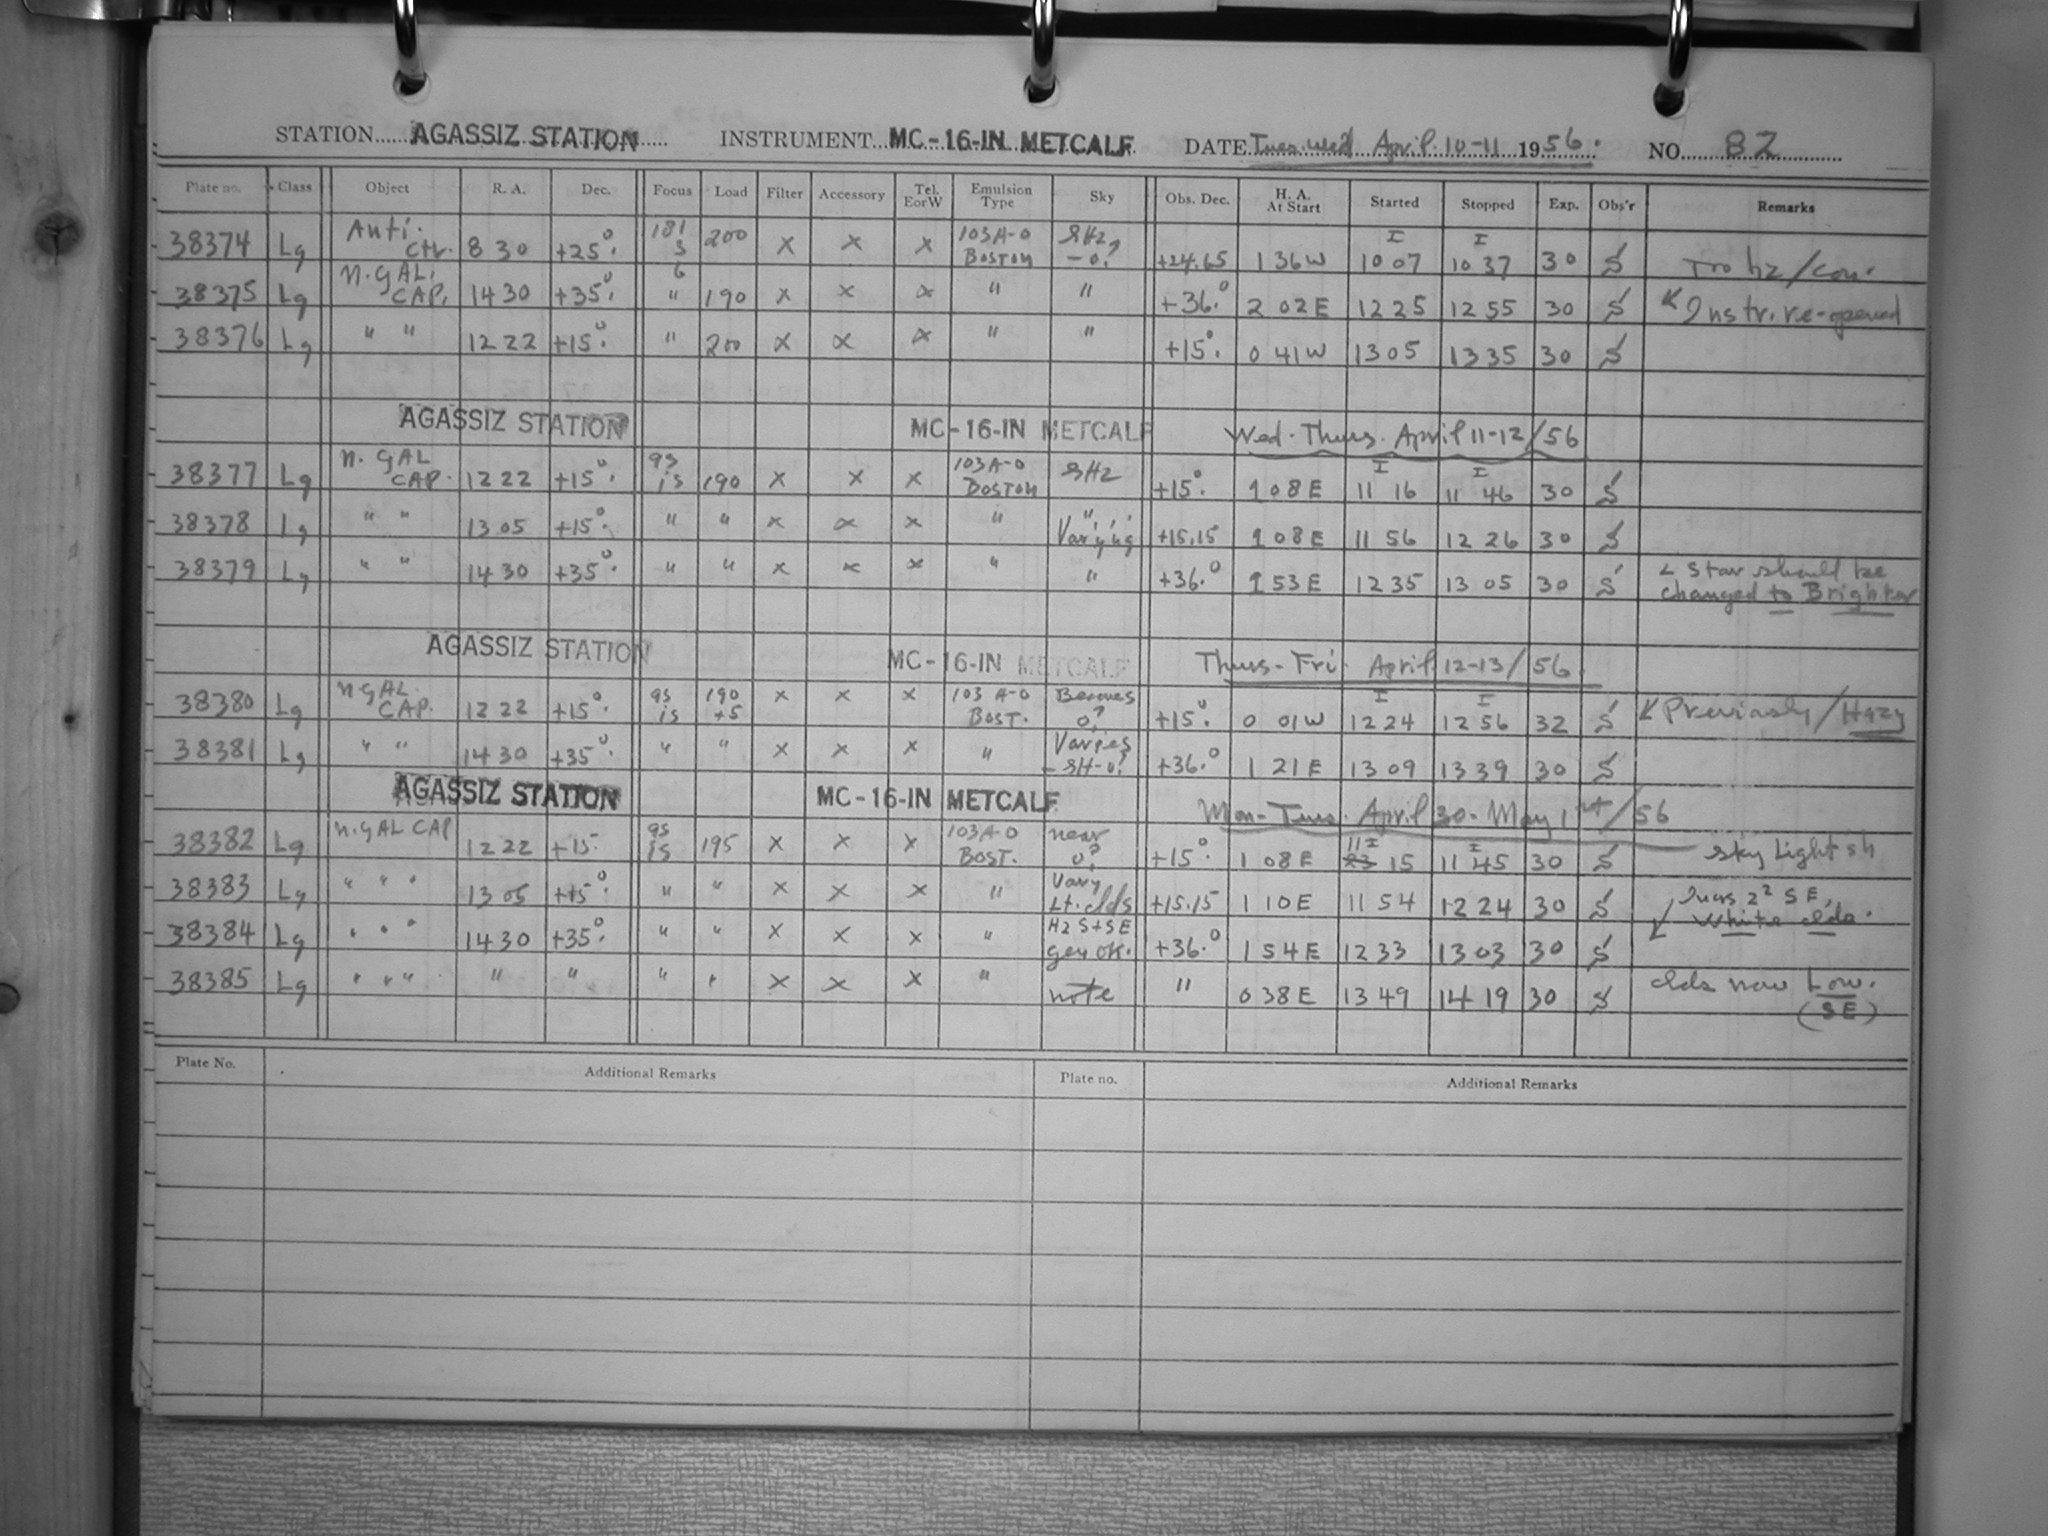 STATION AGASSIZ STATION INSTRUMENT MC-16-IN METCALF DATE Tues. Wed April 10-11 1956. NO. 82
Plate no. Class Object R. A. Dec. Focus Load Filter Accessory Tel. E or W Emulsion Type Sky Obs. Dec. H. A. At Start Started Stopped Exp. Obs'r Remarks
38374 Lg Anti. Ctr. 8 30 +25°. 181 200 x x x 103A-0 BOSTON SHz -0? +24.65 1 36W I 10 07 I 10 37 30 S
38375 Lg N. GAL. CAP. 14 30 +35°. " 190 x x x " " +36.° 2 02E 12 25 12 55 30 S Instr. re-opened
38376 Lg " " 12 22 +15°. " 200 x x x " " +15°. 0 41W 13 05 13 35 30 S
AGASSIZ STATION MC-16-IN METCALF Wed. Thurs. April 11-12/56
38377 Lg N. GAL CAP. 12 22 +15°. 9s is 190 x x x 103A-0 BOSTON SHz +15°. 1 08E I 11 16 I 11 46 30 S
38378 Lg " " 13 05 +15°. " " x x x " " Varying +15.15 1 08E 11 56 12 26 30 S
38379 Lg " " 14 30 +35°. " " x x x " " +36.° 1 53E 12 35 13 05 30 S < Star should be changed to Brighter
AGASSIZ STATION MC-16-IN METCALF Thurs-Fri. April 12-13/56.
38380 Lg N GAL. CAP. 12 22 +15°. 9s is 190 +5 x x x 103 A-0 BOST. Becomes 0? +15°. 0 01W I 12 24 I 12 56 32 S Previously/Hazy
38381 Lg " " 14 30 +35°. " " x x x " Varies -SH-0? +36.° 1 21E 13 09 13 39 30 S
AGASSIZ STATION MC-16-IN METCALF Mon-Tues. April 30-May 1st/56
38382 Lg N. GAL CAP 12 22 +15. 9s is 195 x x x 103A-0 BOST. near 0? +15°. 1 08E 11 I 15 I 11 45 30 S Sky Light'sh
38383 Lg " " " 13 05 +15°. " " x x x " Vary Lt. clds +15.15 1 10E 11 54 12 24 30 S SE, White clds.
38384 Lg " " " 14 30 +35°. " " x x x " Hz S+SE gen ok. +36.° 1 54E 12 33 13 03 30 S
38385 Lg " " " " " " " x x x " note " 0 38E 13 49 14 19 30 S clds now Low. (SE)
Plate No. Additional Remarks Plate no. Additional Remarks